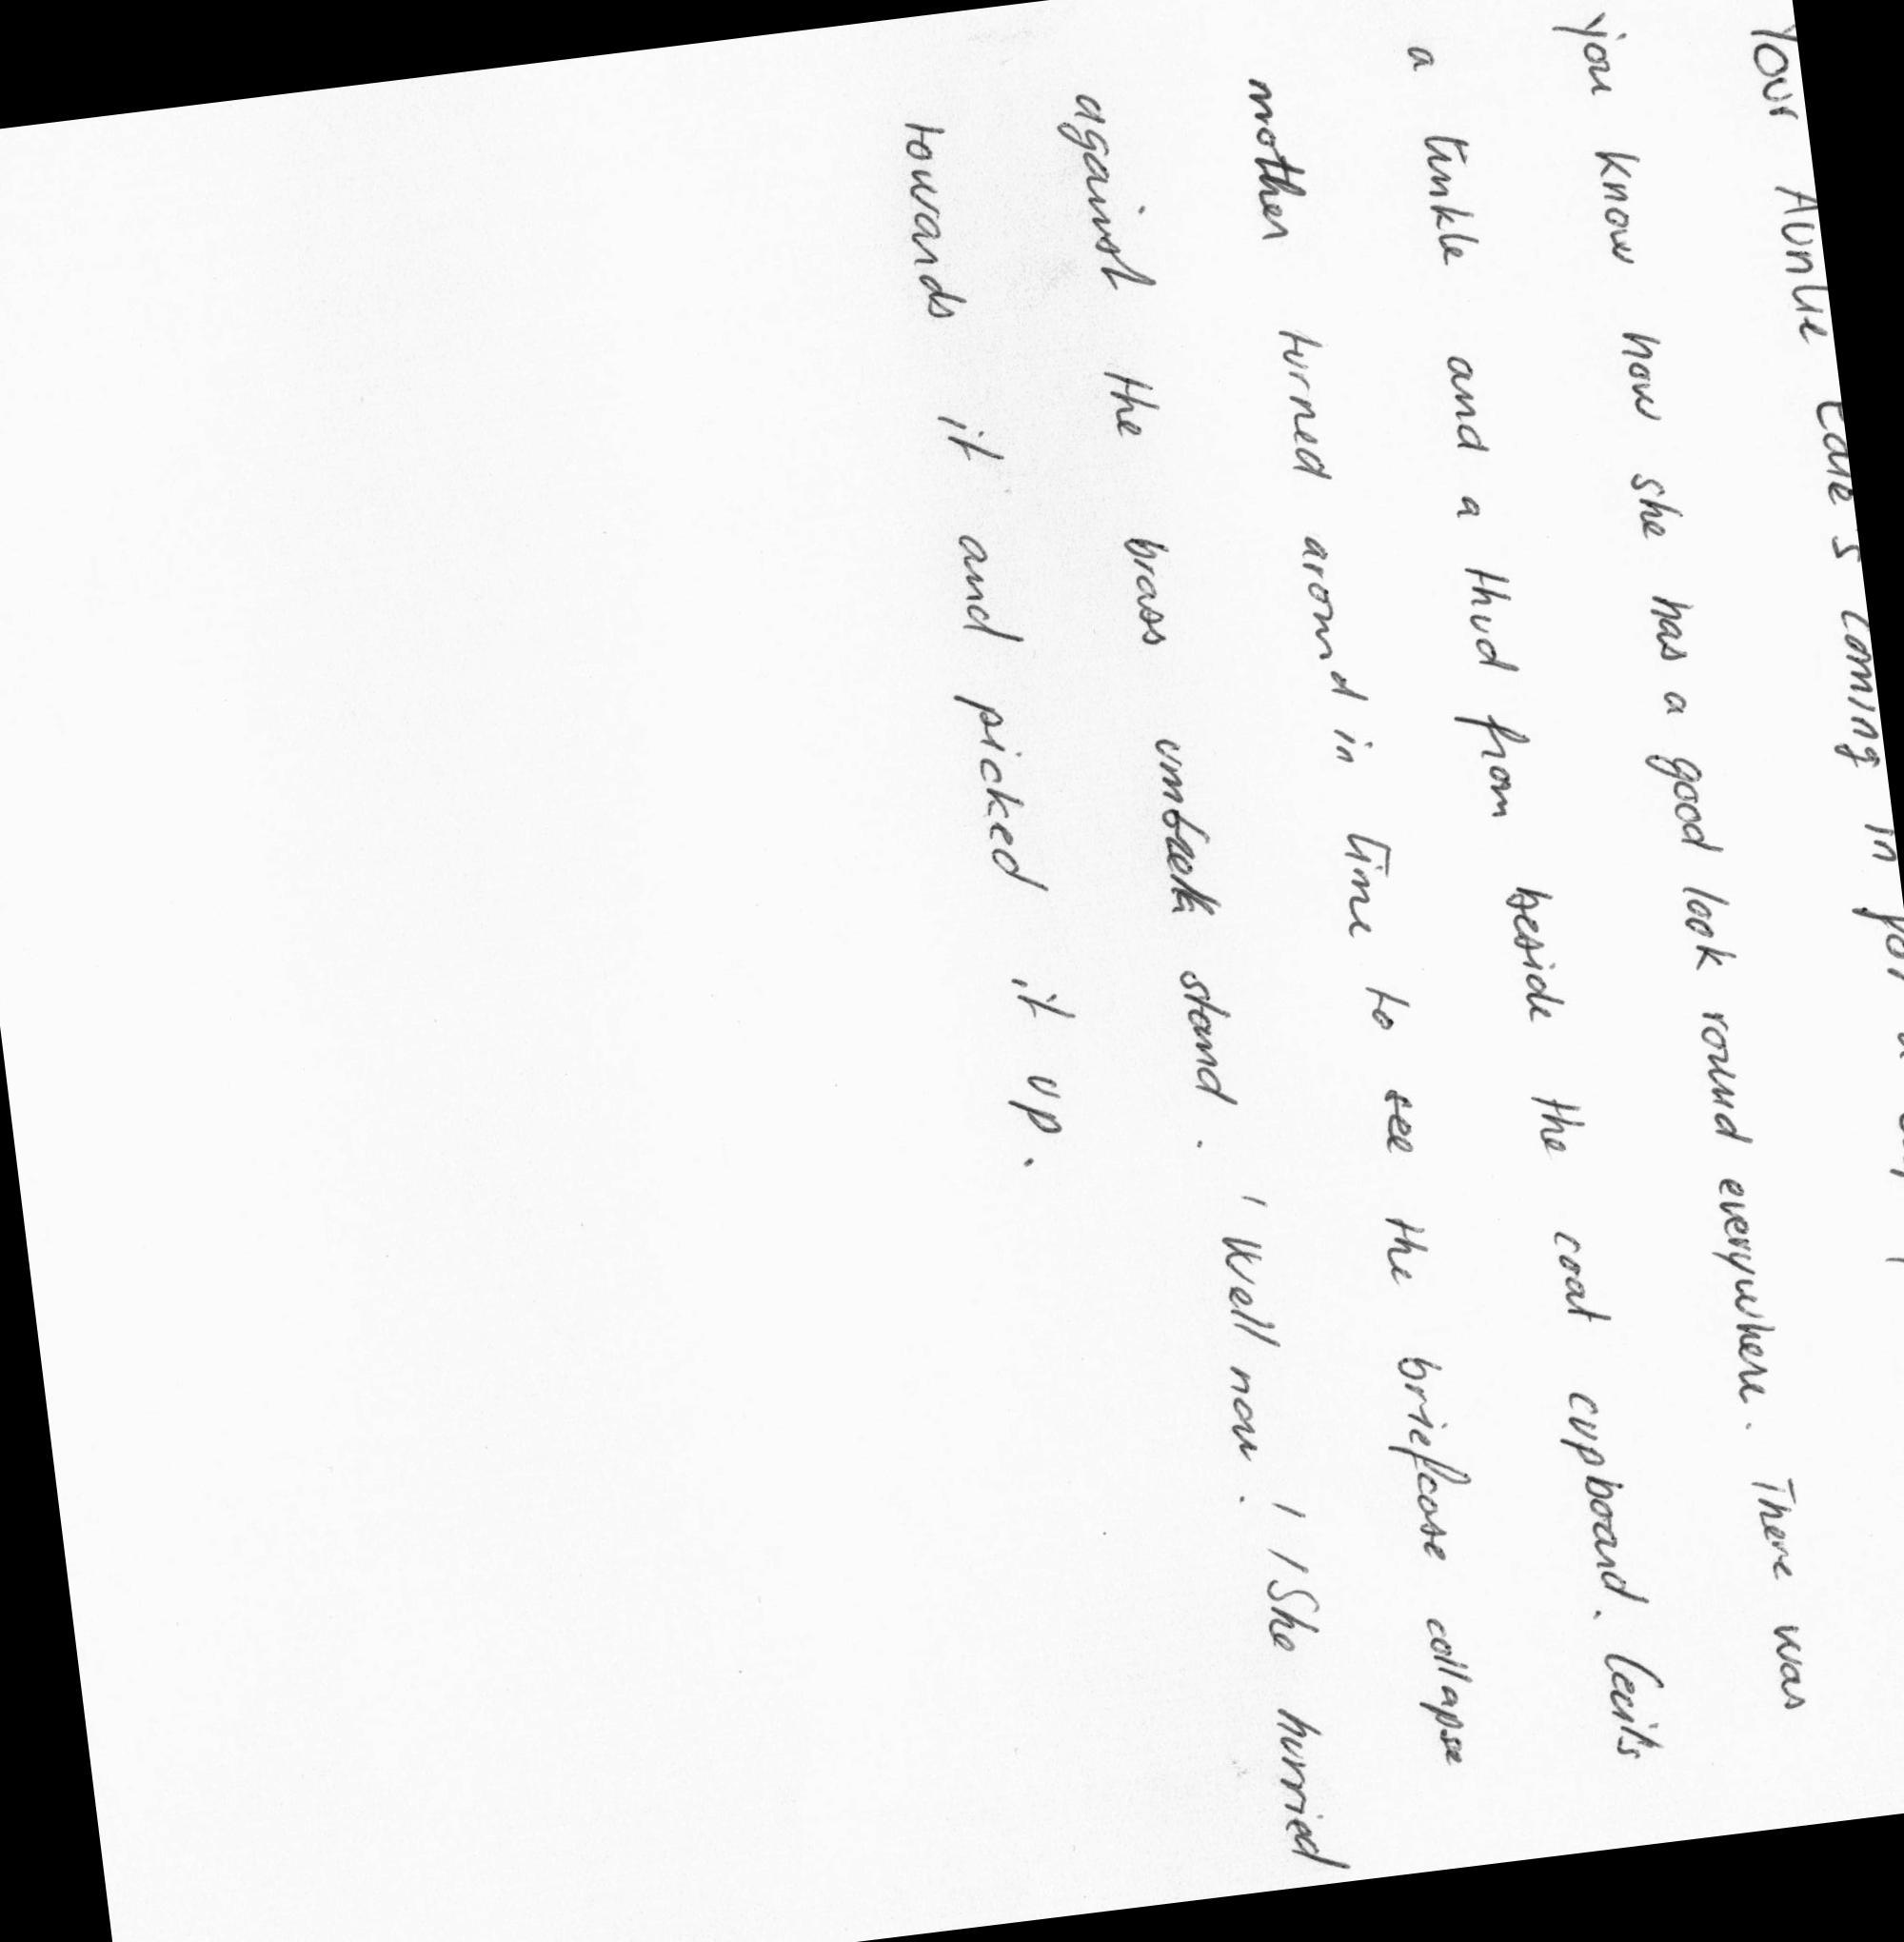 Your Auntie coming in for a
you know how she has a good look round everywhere. There was
a tinkle and a thud from beside the coat cupboard. Cecil's
mother turned around in time to see the briefcase collapse
against the brass stand. 'Well now.' 'She hurried
towards it and picked it up.